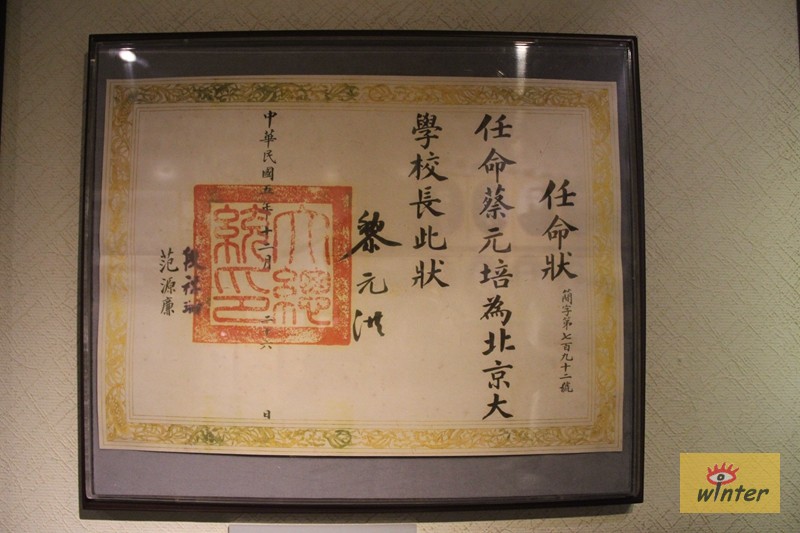 任命狀
簡字第七百九十二號
任命蔡元培為北京大
學校長此狀
黎元洪
大總統印
中華民國五年十二月二十六日
段祺瑞
范源廉
winter